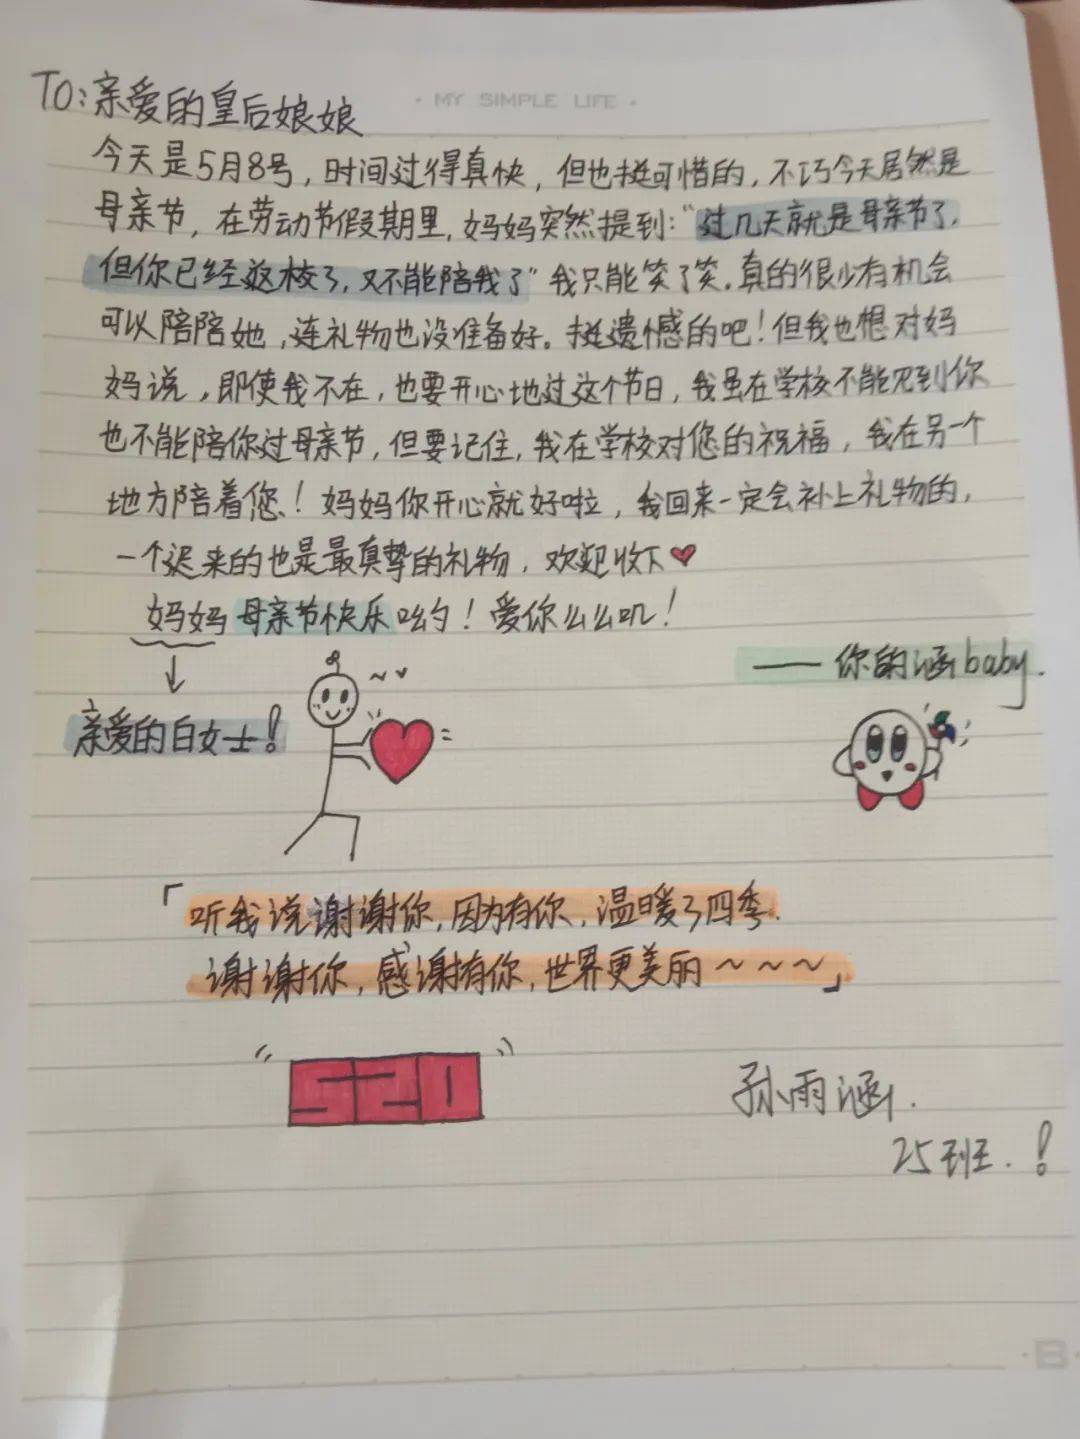 MY SIMPLE LIFE
TO:亲爱的皇后娘娘
今天是5月8号，时间过得真快，但也挺可惜的，不巧今天居然是
母亲节，在劳动节假期里，妈妈突然提到：“过几天就是母亲节了，
但你已经返校了，又不能陪我了”我只能笑了笑。真的很少有机会
可以陪陪她，连礼物也没准备好。挺遗憾的吧！但我也想对妈
妈说，即使我不在，也要开心地过这个节日，我虽在学校不能见到你
也不能陪你过母亲节，但要记住，我在学校对您的祝福，我在另一个
地方陪着您！妈妈你开心就好啦，我回来一定会补上礼物的，
一个迟来的也是最真挚的礼物，欢迎收下
妈妈母亲节快乐呦！爱你么么叽！
——你的涵baby.
亲爱的白女士！
「听我说谢谢你，因为有你，温暖了四季.
谢谢你，感谢有你，世界更美丽～～～」
520
孙雨涵.
25班.！
B